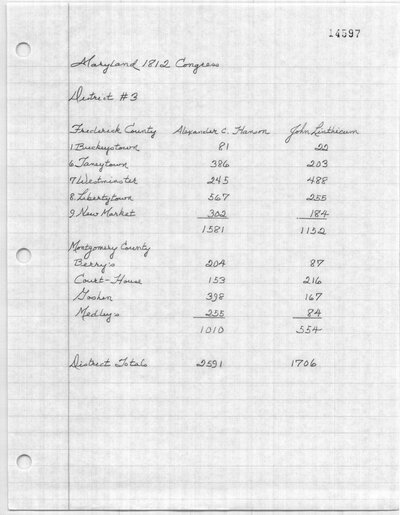 14597
Maryland 1812 Congress
District #3
Frederick County Alexander C. Hanson John Linthicum
1. Buckeystown 81 22
6 Taneytown 386 203
7 Westminster 245 488
8. Libertytown 567 255
9. New Market 302 184
1581 1152
Montgomery County
Berry's 204 87
Court-House 153 216
Goshen 398 167
Medley's 255 84
1010 554
District Totals 2591 1706